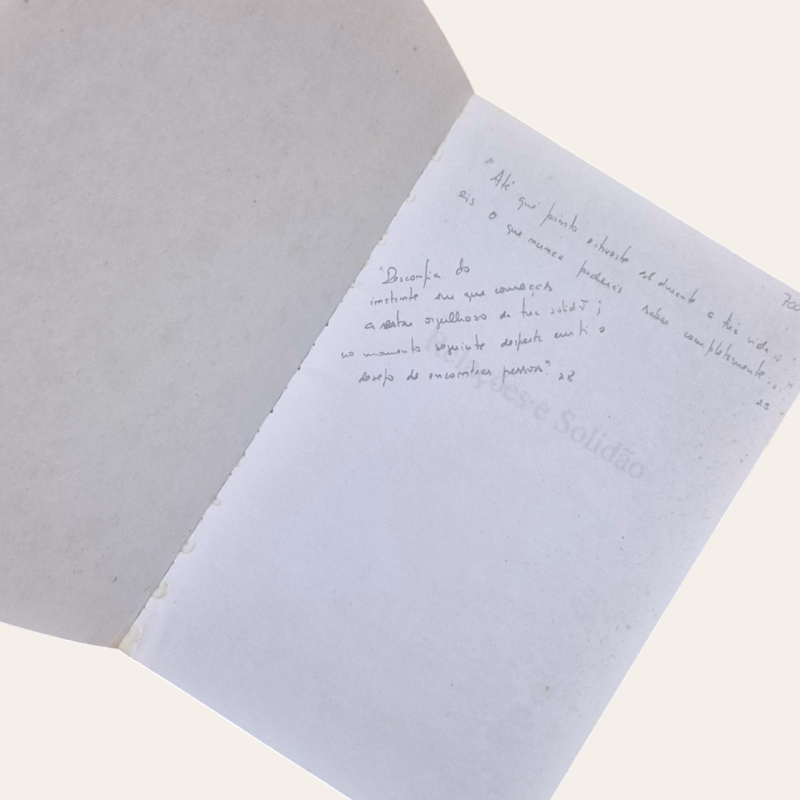 "Até que ponto estiveste atento a tua vida,
eis o que nunca poderás saber completamente."
23
700
"Desconfia do
instante em que começas
a sentir orgulhoso da tua solidão;
no momento seguinte desperta em ti o
desejo de encontrar pessoas" 28
Relações e Solidão